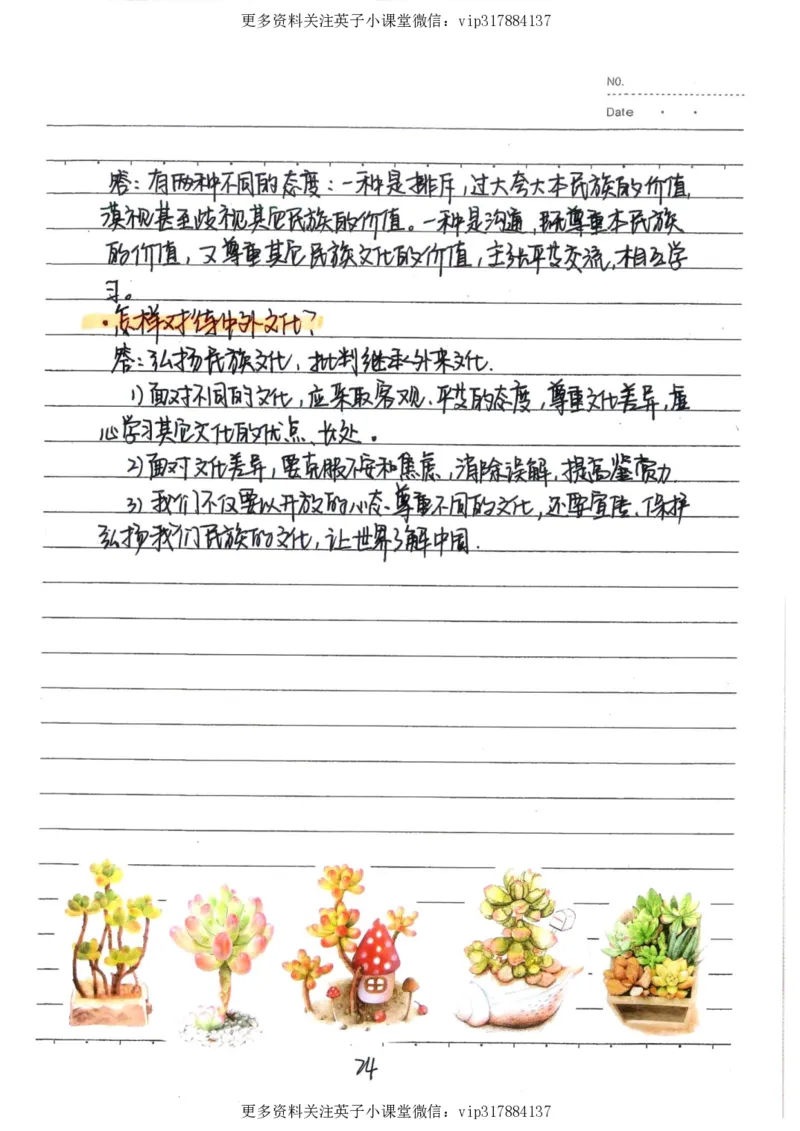 更多资料关注英子小课堂微信：vip317884137
NO.
Date
答：有两种不同的态度：一种是排斥，过大夸大本民族的价值，
漠视甚至歧视其它民族的价值。一种是沟通，既尊重本民族
的价值，又尊重其它民族文化的价值，主张平等交流，相互学
习。
·怎样对待中外文化？
答：弘扬民族文化，批判继承外来文化.
1）面对不同的文化，应采取客观、平等的态度，尊重文化差异，虚
心学习其它文化的优点、长处。
2）面对文化差异，要克服不安和焦虑，消除误解，提高鉴赏力
3）我们不仅要以开放的心态、尊重不同的文化，还要宣传、保护
弘扬我们民族的文化，让世界了解中国.
74
更多资料关注英子小课堂微信：vip317884137